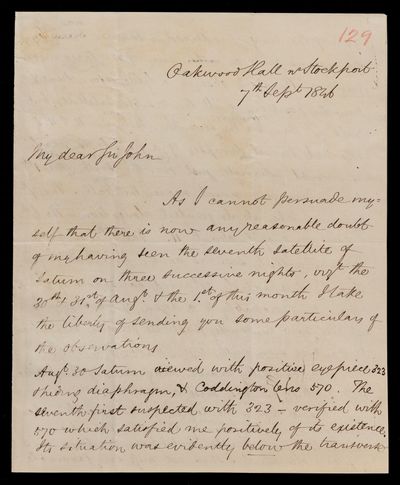 129
Oakwood Hall nr Stockport
7th Sept 1846
My dear Sir John
As I cannot persuade my-
self that there is now any reasonable doubt
of my having seen the seventh satellite of
Saturn on three successive nights, vizt the
30th & 31st of Augt & the 1st of this month I take
the liberty of sending you some particulars of
the observations
Augt 30 Saturn viewed with positive eyepiece 323
sliding diaphragm, & Coddington lens 570. The
seventh first suspected with 323 – verified with
570 which satisfied me positively of its existence.
Its situation was evidently below the transverse